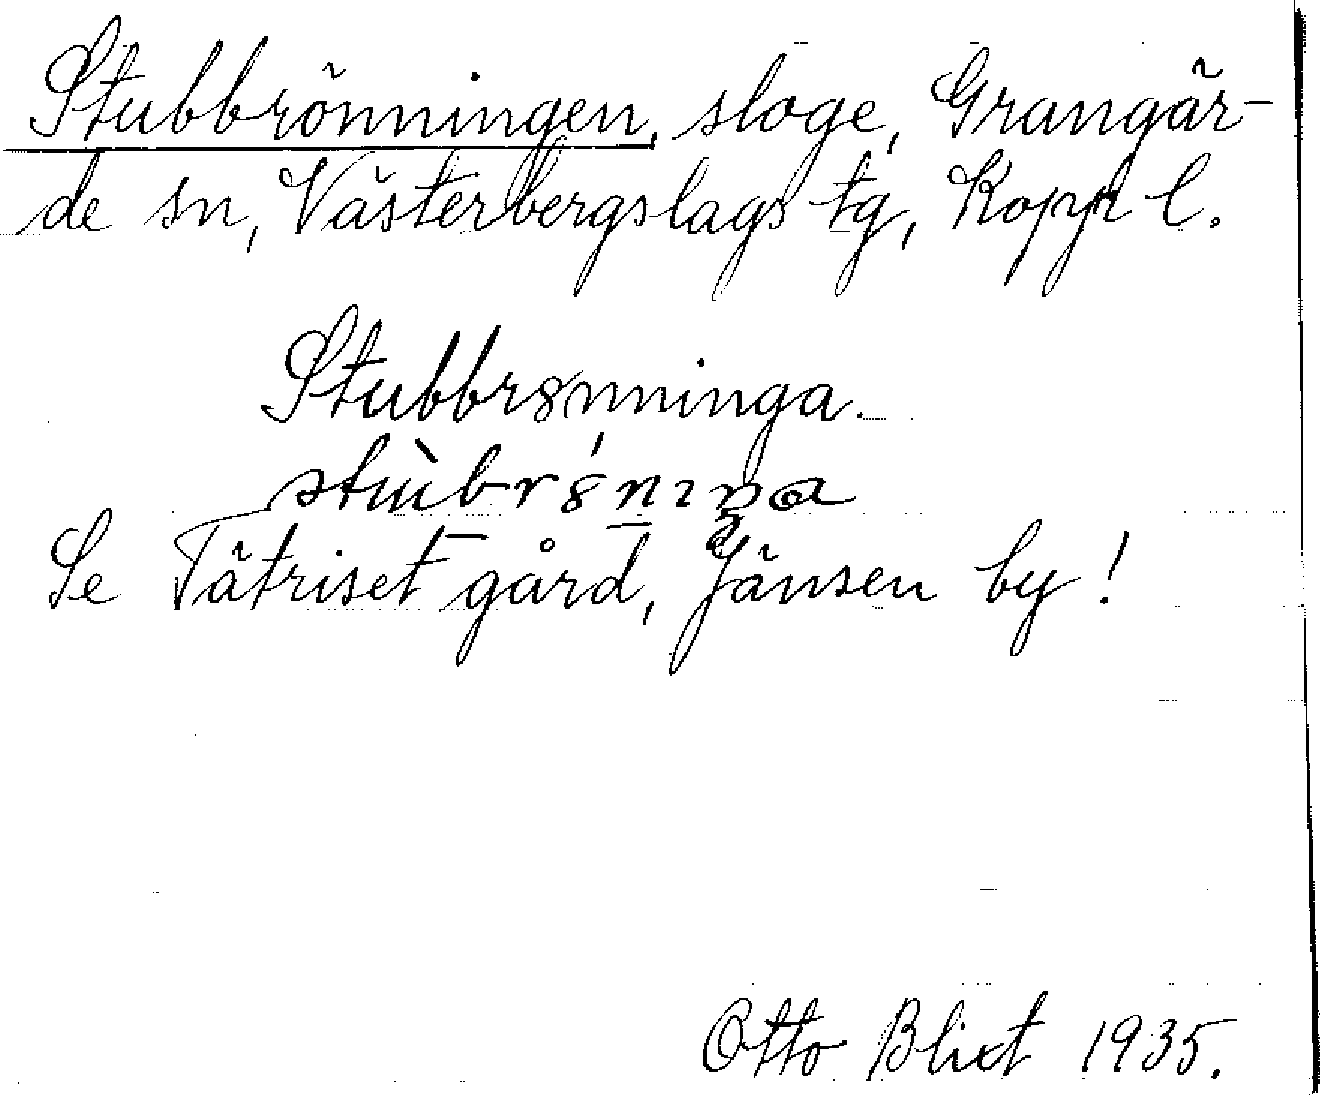 Stubbrönningen, sloge, Grangär-
de sn, Västerbergslags tg, Kopp l.
Stubbrönninga.
Se Tätriset gård, Jänsen by!
Otto Blixt 1935.